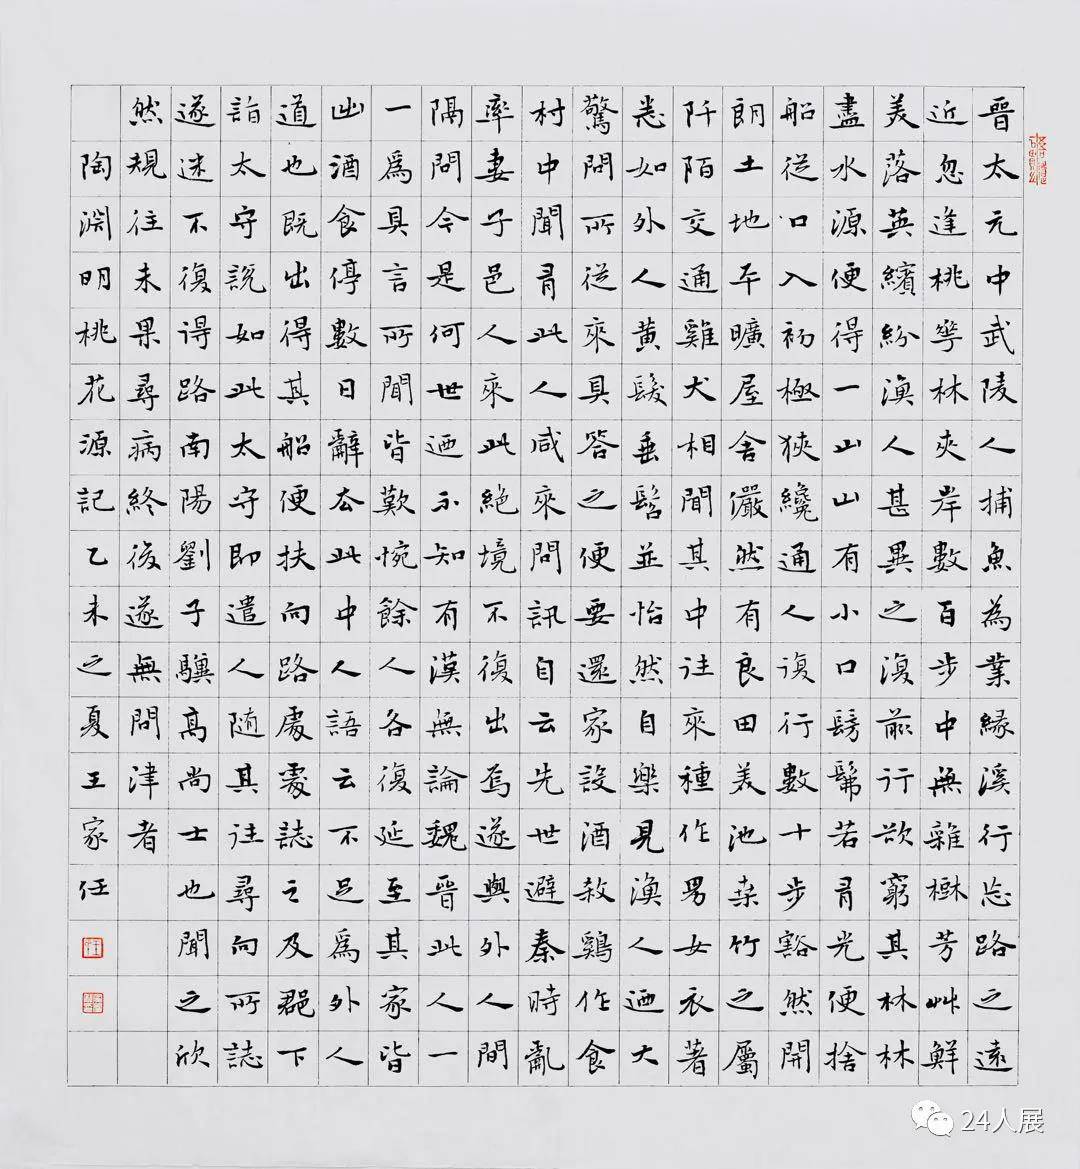 晉太元中武陵人捕魚為業緣溪行忘路之遠
近忽逢桃華林夾岸數百步中無雜樹芳艸鮮
美落英繽紛漁人甚異之復前行欲窮其林林
盡水源便得一山山有小口髣髴若有光便捨
船從口入初極狹纔通人復行數十步豁然開
朗土地平曠屋舍儼然有良田美池桑竹之屬
阡陌交通雞犬相聞其中往來種作男女衣著
悉如外人黃髮垂髫並怡然自樂見漁人迺大
驚問所從來具答之便要還家設酒殺鷄作食
村中聞有此人咸來問訊自云先世避秦時亂
率妻子邑人來此絕境不復出焉遂與外人間
隔問今是何世迺不知有漢無論魏晉此人一
一爲具言所聞皆歎惋餘人各復延至其家皆
出酒食停數日辭去此中人語云不足爲外人
道也既出得其船便扶向路處處誌之及郡下
詣太守說如此太守即遣人隨其往尋向所誌
遂迷不復得路南陽劉子驥高尚士也聞之欣
然規往未果尋病終後遂無問津者
陶淵明桃花源記乙未之夏王家任
24人展